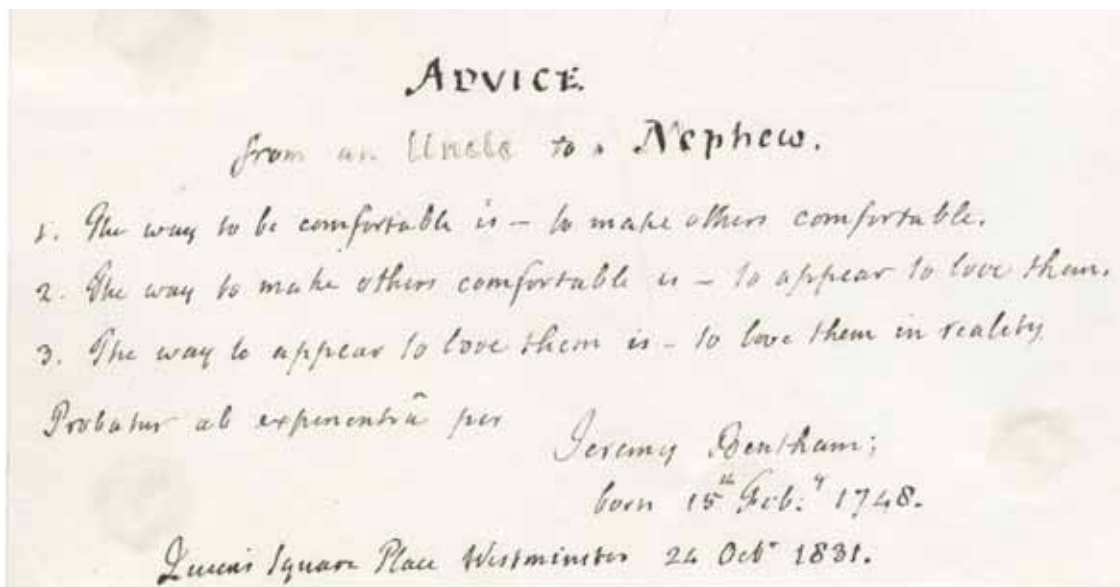 ADVICE
from an Uncle to a Nephew.
1. The way to be comfortable is – to make others comfortable.
2. The way to make others comfortable is – to appear to love them.
3. The way to appear to love them is – to love them in reality
Probatur ab experientiâ per
Jeremy Bentham;
born 15th Feb.y 1748.
Queen's Square Place Westminster 24 Octr 1831.